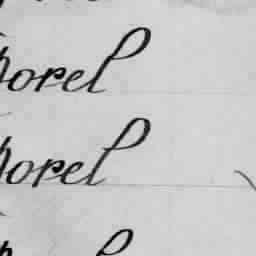 porel
porel